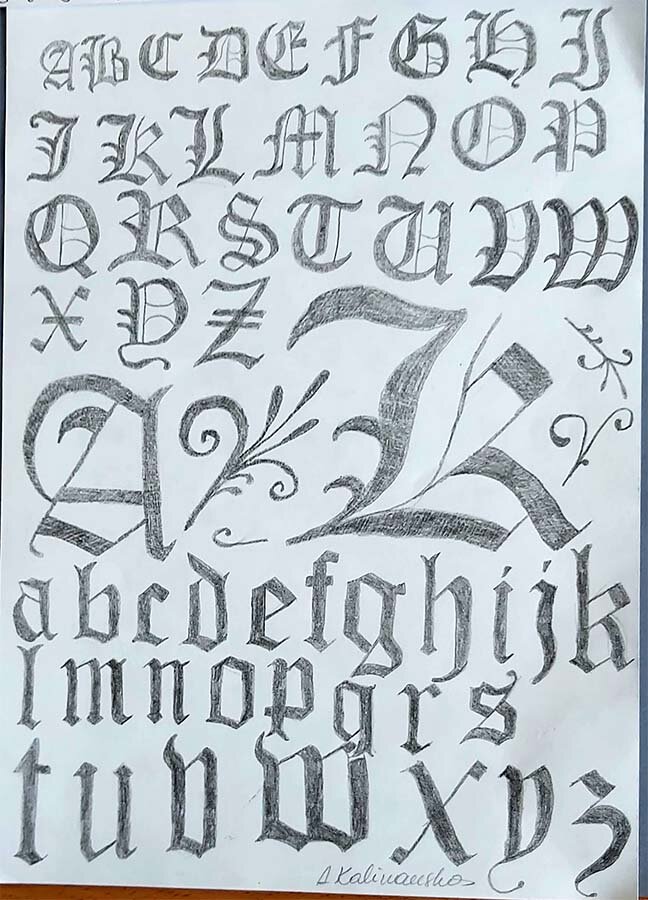 A B C D E F G H I
J K L M N O P
Q R S T U V W
X Y Z
A K
a b c d e f g h i j k
l m n o p q r s
t u v w x y z